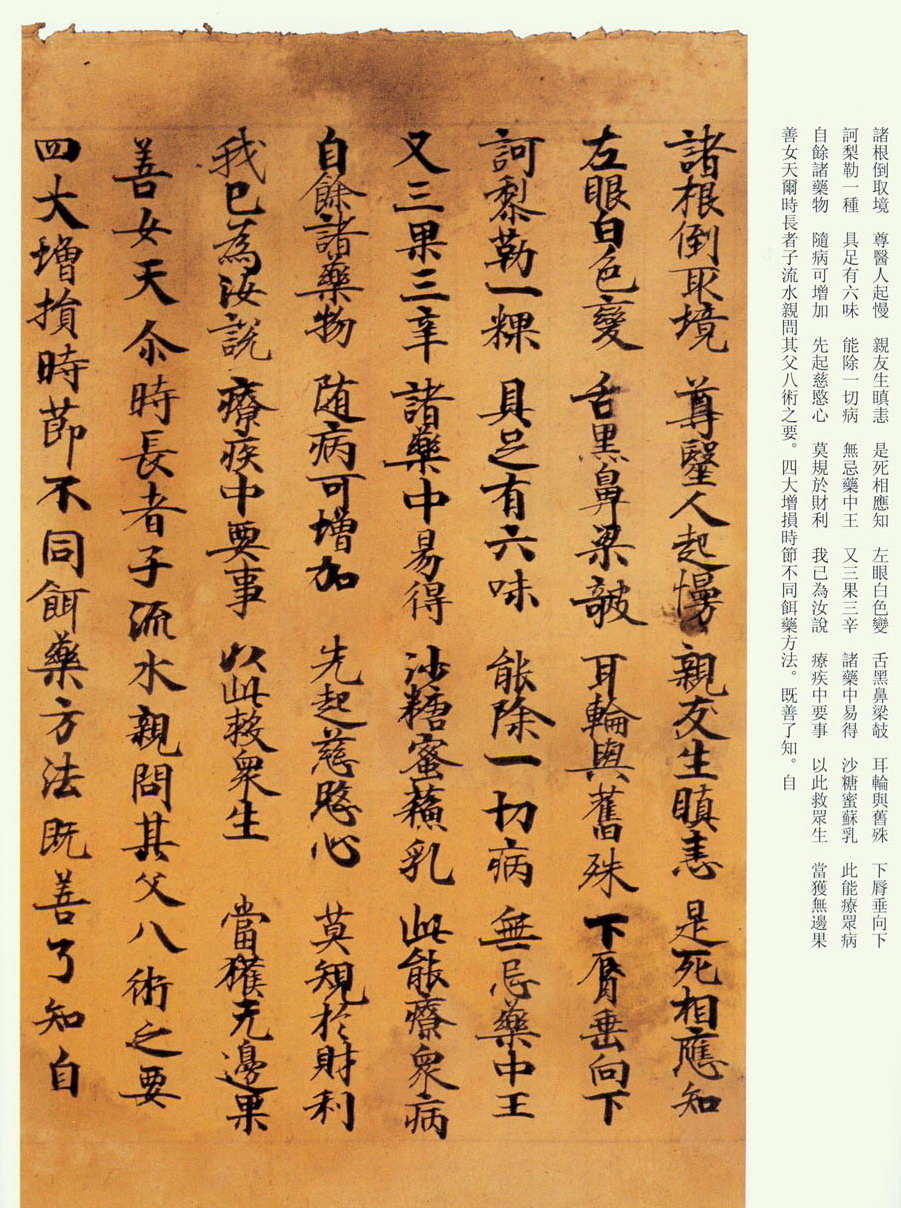 諸根倒取境 尊醫人起慢 親友生瞋恚 是死相應知 左眼白色變 舌黑鼻梁攲 耳輪與舊殊 下脣垂向下
訶梨勒一種 具足有六味 能除一切病 無忌藥中王 又三果三辛 諸藥中易得 沙糖蜜蘇乳 此能療眾病
自餘諸藥物 隨病可增加 先起慈愍心 莫規於財利 我已為汝說 療疾中要事 以此救眾生 當獲無邊果
善女天爾時長者子流水親問其父八術之要。四大增損時節不同餌藥方法。既善了知。自
諸根倒取境 尊醫人起慢 親友生瞋恚 是死相應知
左眼白色變 舌黑鼻梁攲 耳輪與舊殊 下脣垂向下
訶黎勒一顆 具足有六味 能除一切病 無忌藥中王
又三果三辛 諸藥中易得 沙糖蜜蘇乳 此能療衆病
自餘諸藥物 随病可增加 先起慈愍心 莫規於財利
我已為汝說 療疾中要事 以此救衆生 當獲无邊果
善女天尒時長者子流水親問其父八術之要
四大增損時節不同餌藥方法既善了知自